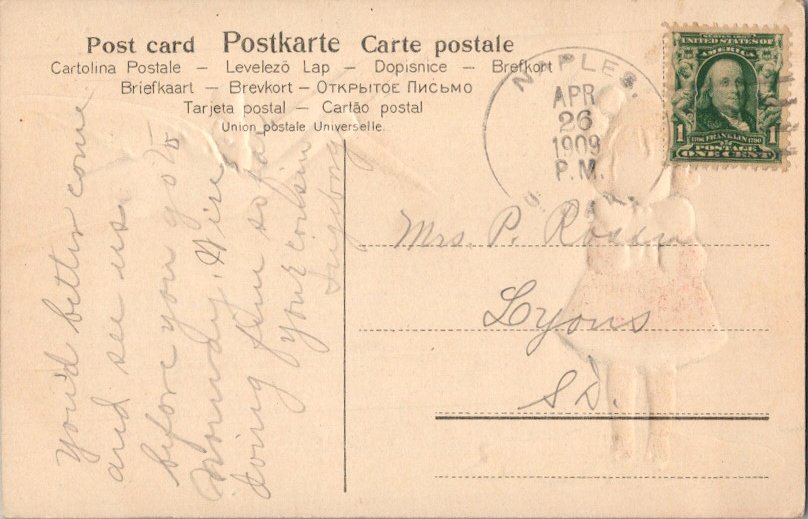 Post card Postkarte Carte postale
Cartolina Postale — Levelező Lap — Dopisnice — Brefkort
Briefkaart — Brevkort — Открытое Письмо
Tarjeta postal — Cartão postal
Union postale Universelle.
NAPLES,
APR
26
1909
P.M.
SERIES 1902
UNITED STATES OF
AMERICA
1 FRANKLIN 1
POSTAGE
ONE CENT
You'd better come
and see us
before you go to
Norway. We're
doing fine so far
Your cousin
Ingeborg
Mrs. P. Rosum
Lyons
SD.